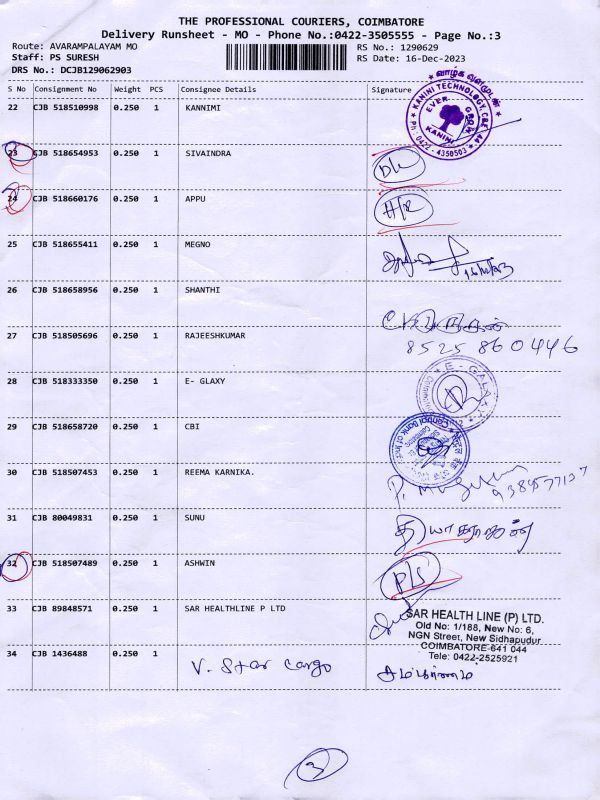 THE PROFESSIONAL COURIERS, COIMBATORE
Delivery Runsheet - MO - Phone No.:0422-3505555 - Page No.:3
Route: AVARAMPALAYAM MO RS No.: 1290629
Staff: PS SURESH RS Date: 16-Dec-2023
DRS No.: DCJB129062903
S No Consignment No Weight PCS Consignee Details Signature
வாழ்க வளமுடன்
KANINI TECHNOLOGY, CBE-44
EVER GROW
KANINI
Ph : 0422 - 4350503
22 CJB 518510998 0.250 1 KANNIMI
23 CJB 518654953 0.250 1 SIVAINDRA D/L
24 CJB 518660176 0.250 1 APPU H/R
25 CJB 518655411 0.250 1 MEGNO
26 CJB 518658956 0.250 1 SHANTHI
27 CJB 518505696 0.250 1 RAJEESHKUMAR 8525860446
28 CJB 518333350 0.250 1 E- GLAXY E - GALAXY
29 CJB 518658720 0.250 1 CBI Central Bank of India
30 CJB 518507453 0.250 1 REEMA KARNIKA.
31 CJB 80049831 0.250 1 SUNU தியாகராஜன்
32 CJB 518507489 0.250 1 ASHWIN P/S
33 CJB 89848571 0.250 1 SAR HEALTHLINE P LTD SAR HEALTH LINE (P) LTD.
Old No: 1/188, New No: 6,
NGN Street, New Sidhapudur
COIMBATORE-641 044
Tele: 0422-2525921
34 CJB 1436488 0.250 1 V. Star Cargo
3